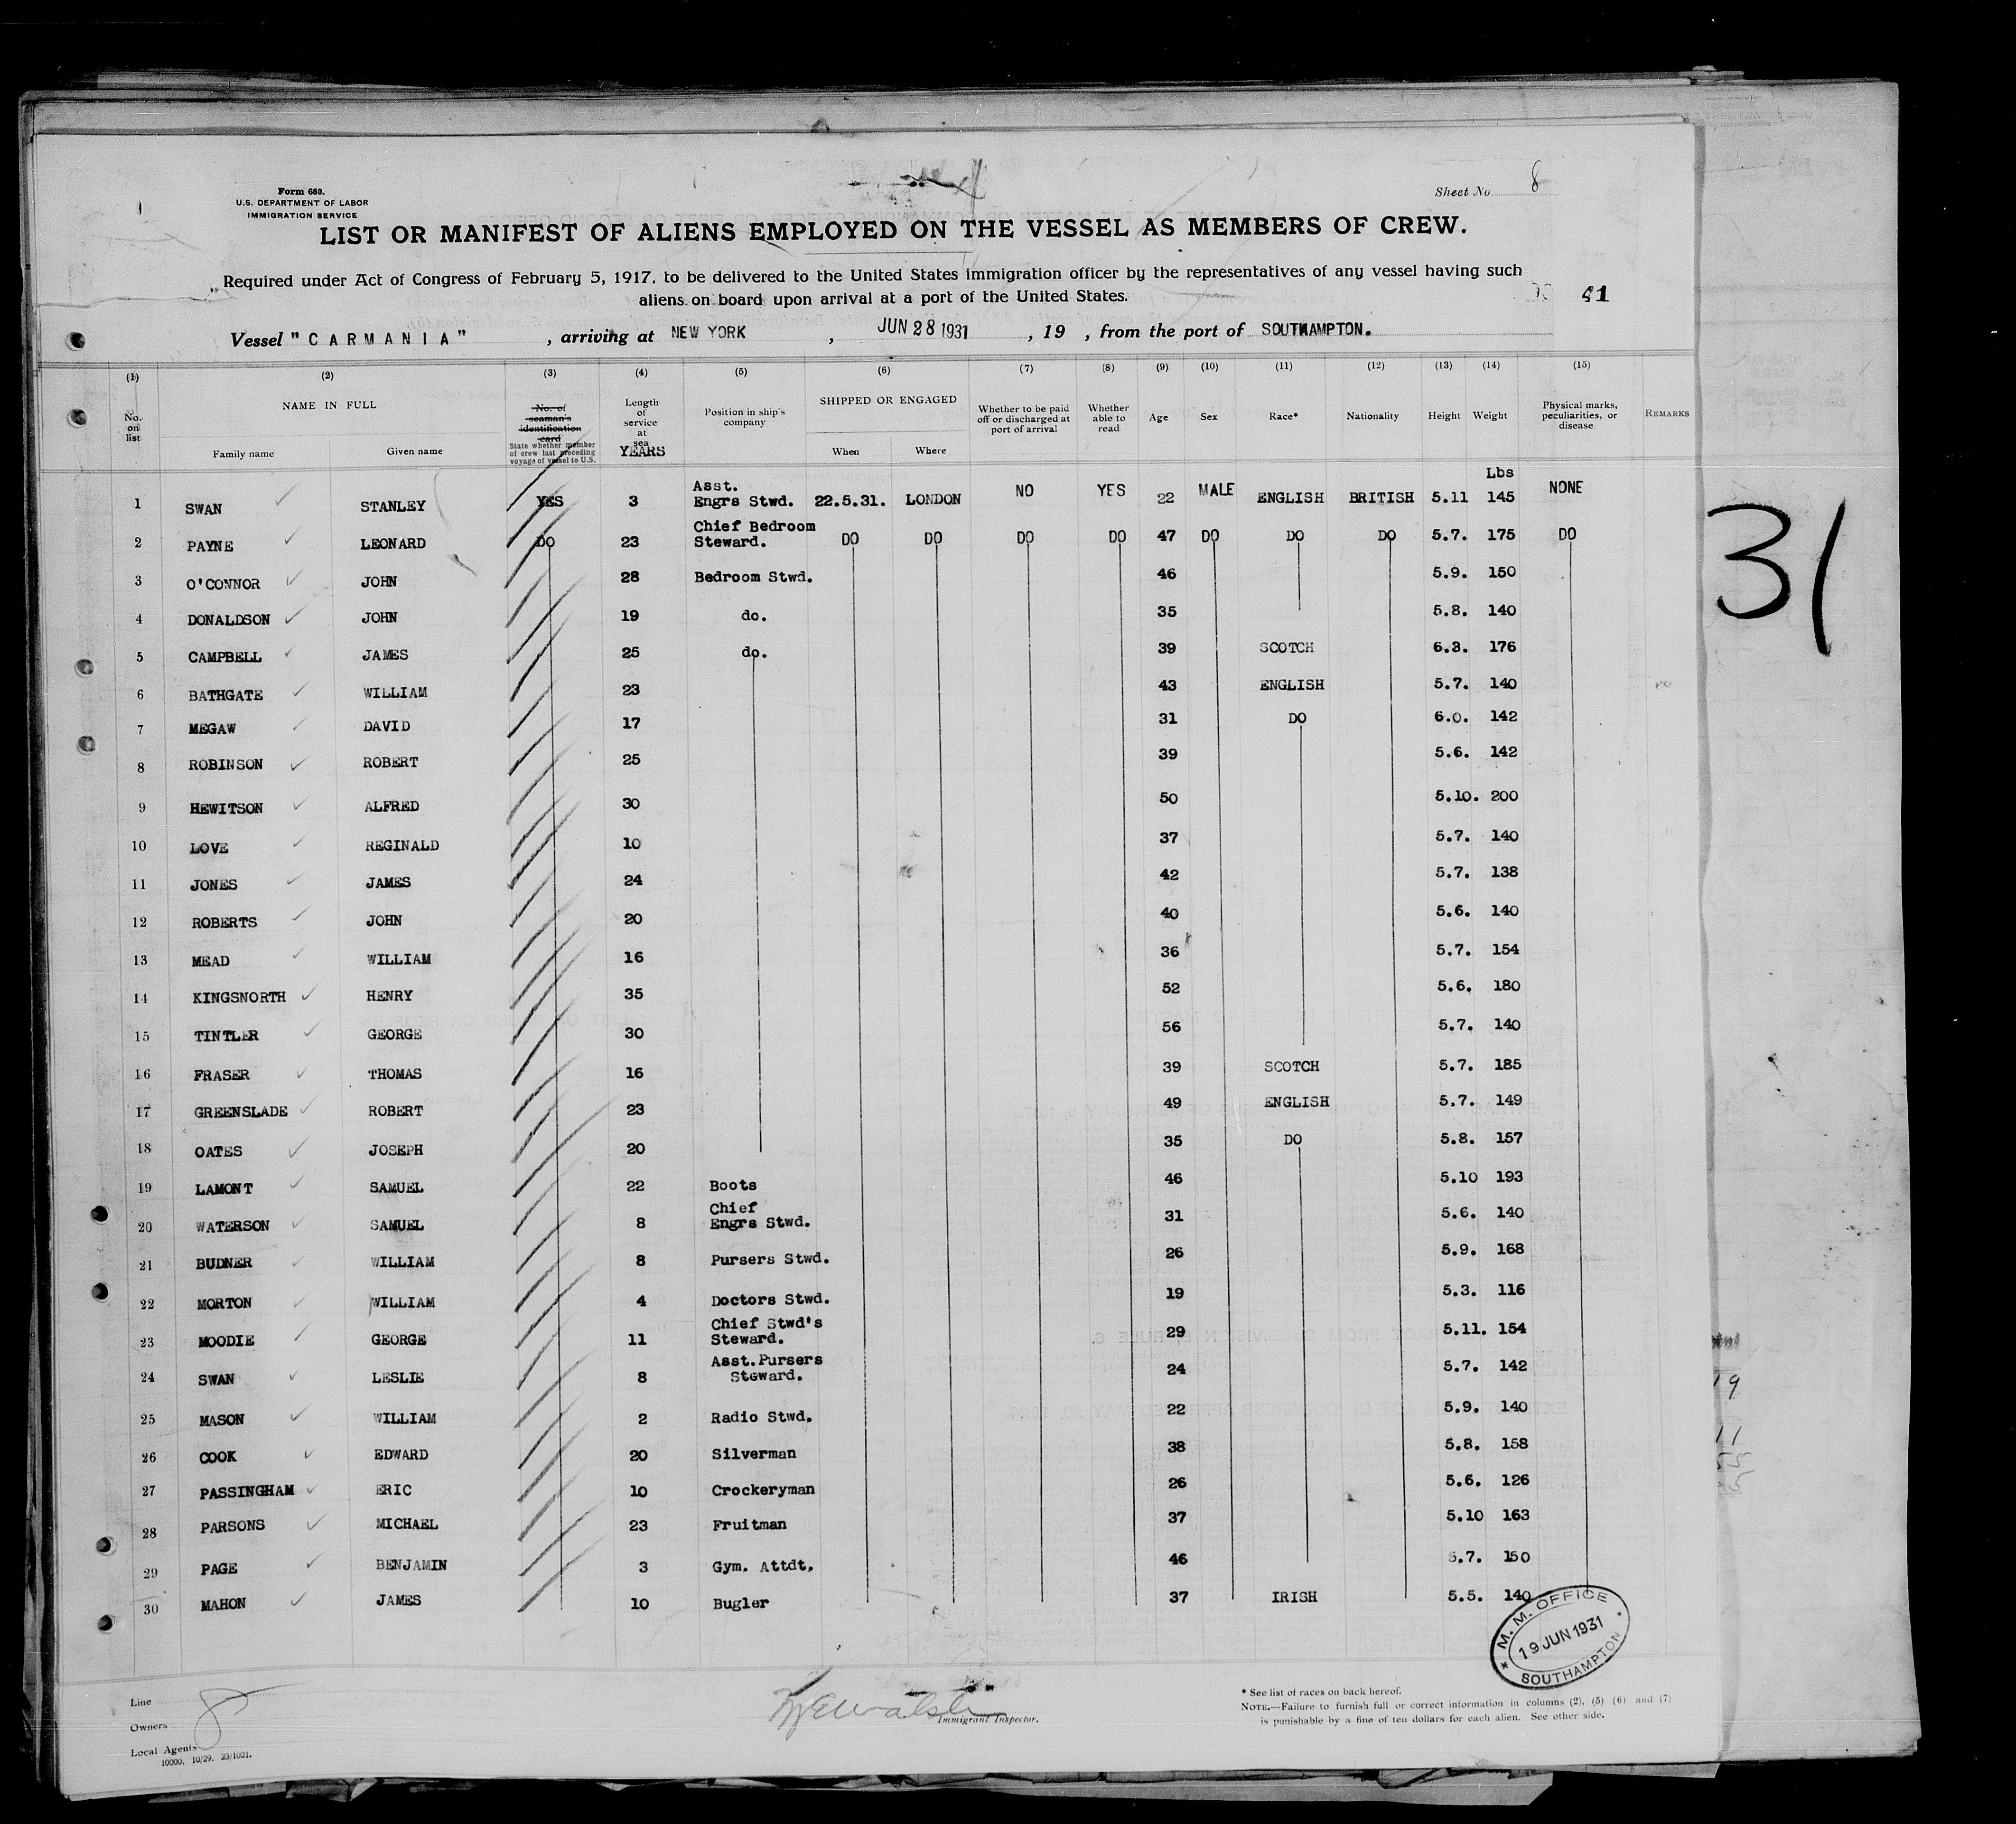 Form 680.
U.S. DEPARTMENT OF LABOR
IMMIGRATION SERVICE
Sheet No 8
LIST OR MANIFEST OF ALIENS EMPLOYED ON THE VESSEL AS MEMBERS OF CREW.
Required under Act of Congress of February 5, 1917, to be delivered to the United States immigration officer by the representatives of any vessel having such
aliens on board upon arrival at a port of the United States.
41
Vessel "CARMANIA", arriving at NEW YORK, JUN 28 1931, 19 , from the port of SOUTHAMPTON.
(1) (2) (3) (4) (5) (6) (7) (8) (9) (10) (11) (12) (13) (14) (15)
No. on list NAME IN FULL Family name Given name No. of seaman's identification card State whether member of crew last preceding voyage of vessel to U.S. Length of service at sea YEARS Position in ship's company SHIPPED OR ENGAGED When Where Whether to be paid off or discharged at port of arrival Whether able to read Age Sex Race* Nationality Height Weight Physical marks, peculiarities, or disease REMARKS
Lbs
1 SWAN STANLEY YES 3 Asst. Engrs Stwd. 22.5.31. LONDON NO YES 22 MALE ENGLISH BRITISH 5.11 145 NONE
2 PAYNE LEONARD DO 23 Chief Bedroom Steward. DO DO DO DO 47 DO DO DO 5.7. 175 DO
3 O'CONNOR JOHN 28 Bedroom Stwd. 46 5.9. 150
4 DONALDSON JOHN 19 do. 35 5.8. 140
5 CAMPBELL JAMES 25 do. 39 SCOTCH 6.3. 176
6 BATHGATE WILLIAM 23 43 ENGLISH 5.7. 140
7 MEGAW DAVID 17 31 DO 6.0. 142
8 ROBINSON ROBERT 25 39 5.6. 142
9 HEWITSON ALFRED 30 50 5.10. 200
10 LOVE REGINALD 10 37 5.7. 140
11 JONES JAMES 24 42 5.7. 138
12 ROBERTS JOHN 20 40 5.6. 140
13 MEAD WILLIAM 16 36 5.7. 154
14 KINGSNORTH HENRY 35 52 5.6. 180
15 TINTLER GEORGE 30 56 5.7. 140
16 FRASER THOMAS 16 39 SCOTCH 5.7. 185
17 GREENSLADE ROBERT 23 49 ENGLISH 5.7. 149
18 OATES JOSEPH 20 35 DO 5.8. 157
19 LAMONT SAMUEL 22 Boots 46 5.10 193
20 WATERSON SAMUEL 8 Chief Engrs Stwd. 31 5.6. 140
21 BUDNER WILLIAM 8 Pursers Stwd. 26 5.9. 168
22 MORTON WILLIAM 4 Doctors Stwd. 19 5.3. 116
23 MOODIE GEORGE 11 Chief Stwd's Steward. 29 5.11. 154
24 SWAN LESLIE 8 Asst. Pursers Steward. 24 5.7. 142
25 MASON WILLIAM 2 Radio Stwd. 22 5.9. 140
26 COOK EDWARD 20 Silverman 38 5.8. 158
27 PASSINGHAM ERIC 10 Crockeryman 26 5.6. 126
28 PARSONS MICHAEL 23 Fruitman 37 5.10 163
29 PAGE BENJAMIN 3 Gym. Attdt. 46 5.7. 150
30 MAHON JAMES 10 Bugler 37 IRISH 5.5. 140
31
M.M. OFFICE
19 JUN 1931
SOUTHAMPTON
Line
Owners
8
Local Agents
10000, 10/29, 23/1021.
Immigrant Inspector.
* See list of races on back hereof.
NOTE.—Failure to furnish full or correct information in columns (2), (5) (6) and (7)
is punishable by a fine of ten dollars for each alien. See other side.
19
11